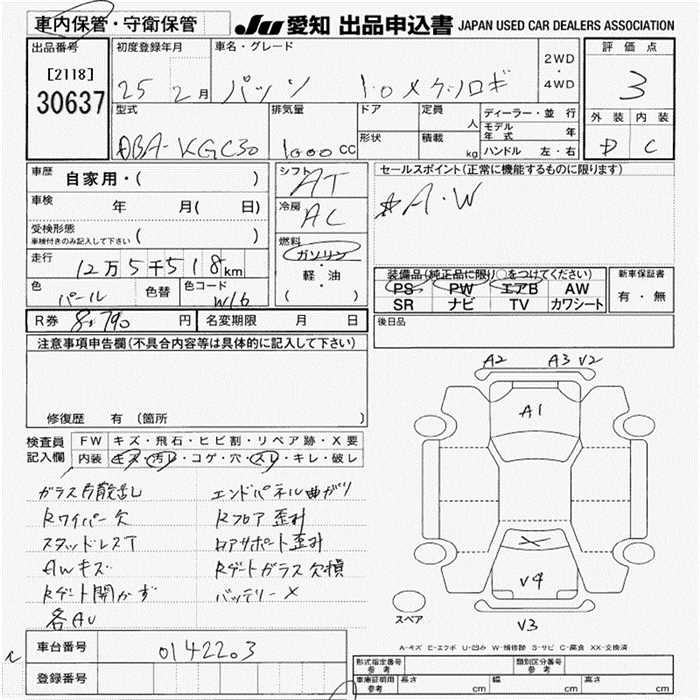 車内保管・守衛保管
JU 愛知 出品申込書 JAPAN USED CAR DEALERS ASSOCIATION
出品番号
[2118]
30637
初度登録年月
25 2月
車名・グレード
パッソ 1.0X
2WD
・
4WD
評価点
3
外装 内装
D C
型式
DBA-KGC30
排気量
1000 CC
ドア
形状
定員
人
積載
kg
ディーラー・並行
モデル年式 年
ハンドル 左・右
車歴 自家用・( )
車検 年 月( 日)
受検形態
車検付きのみ記入して下さい ( )
走行 12万5千518km
色 パール 色替 色コード W16
シフト AT
冷房 AC
燃料
ガソリン
・
軽・油
( )
セールスポイント(正常に機能するものに限ります)
A・W
装備品(純正品に限り○をつけてください)
PS PW エアB AW
SR ナビ TV カワシート
新車保証書
有・無
R券 8,790 円 名変期限 月 日
後日品
注意事項申告欄(不具合内容等は具体的に記入して下さい)
修復歴 有 (箇所 )
検査員記入欄
FW キズ・飛石・ヒビ割・リペア跡・X要
内装 キズ・汚レ・コゲ・穴・スレ・キレ・破レ
ガラス内散乱し エンドパネル曲がり
Rワイパー欠 Rフロア歪み
スタッドレスT Rアサポート歪み
AWキズ Rゲートガラス欠損
Rゲート開かず バッテリーX
各AU
A2 A3 V2
A1
X
V4
V3
スペア
A-キズ E-エクボ U-凹み W-補修跡 S-サビ C-腐食 XX-交換済
車台番号 0142203
登録番号
形式指定番号 参考
類別区分番号 参考
車庫証明用 参考 長さ cm 幅 cm 高さ cm